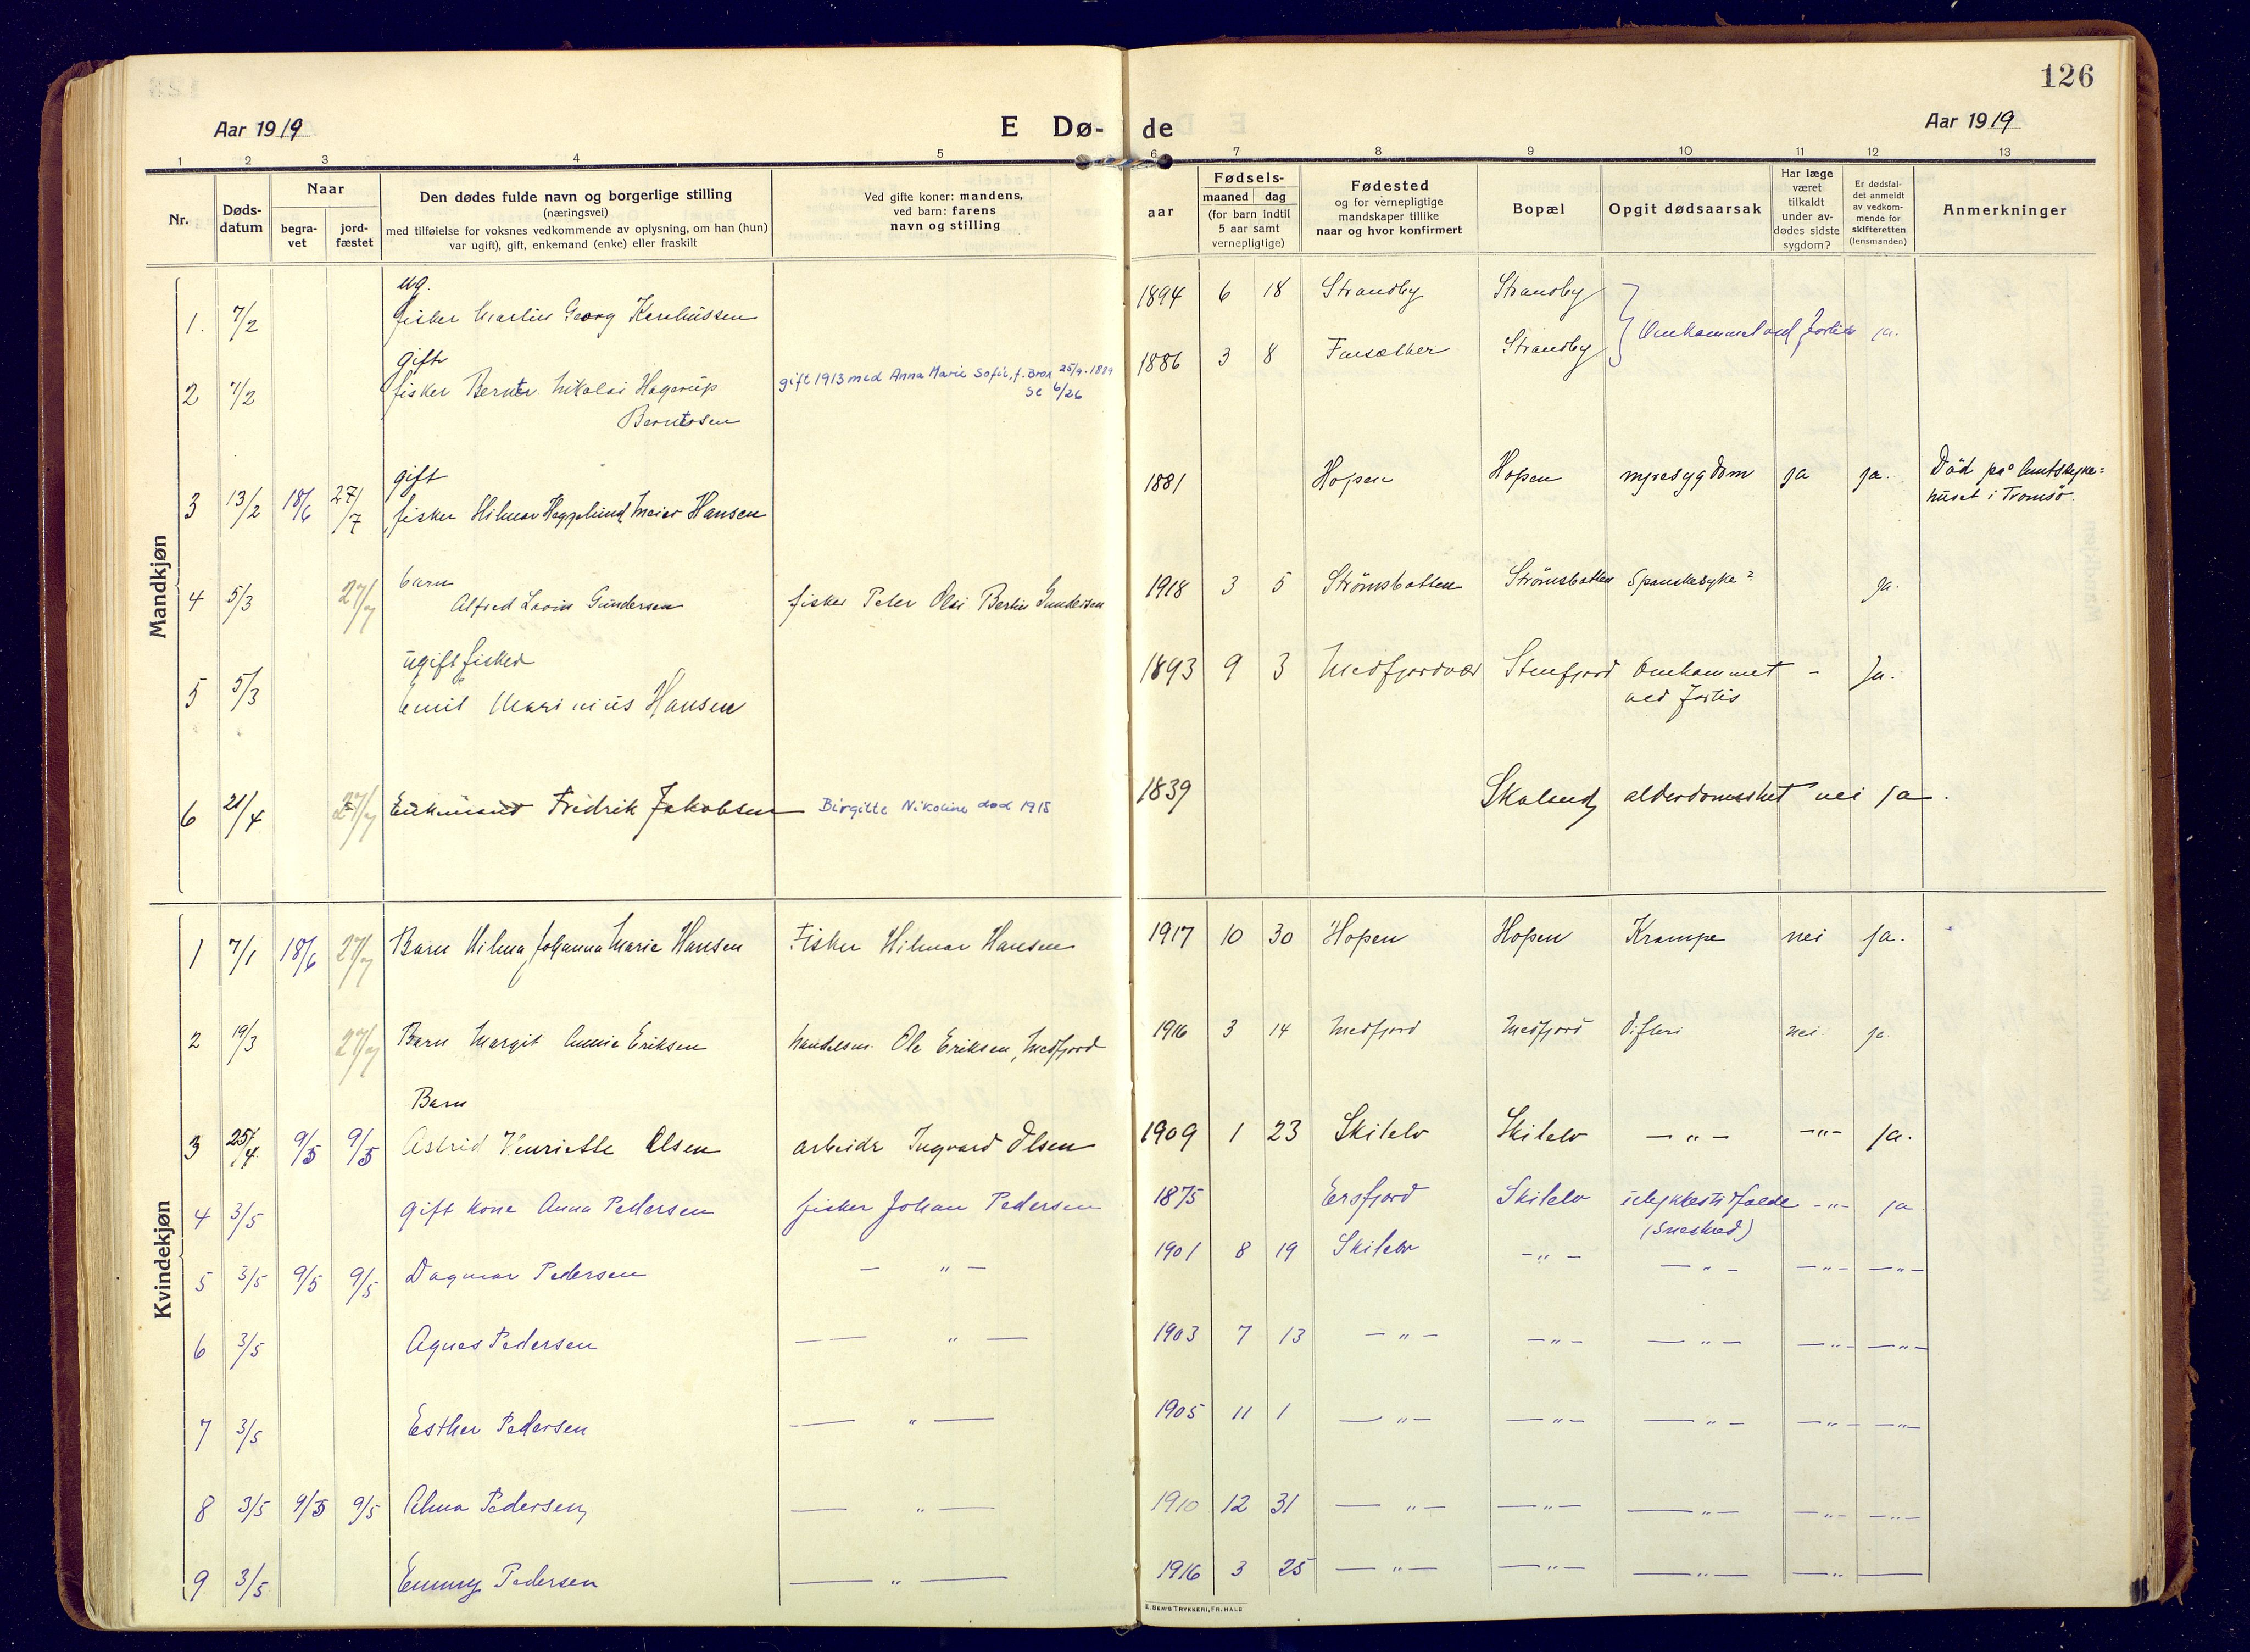 126
Aar 1919
E Dø- de
Aar 1919
1 2 3 4 5 6 7 8 9 10 11 12 13
Nr.
Døds-
datum
Naar
begra-
vet
jord-
fæstet
Den dødes fulde navn og borgerlige stilling
(næringsvei)
med tilføielse for voksnes vedkommende av oplysning, om han (hun)
var ugift), gift, enkemand (enke) eller fraskilt
Ved gifte koner: mandens,
ved barn: farens
navn og stilling
Fødsels-
aar
maaned dag
(for barn indtil
5 aar samt
vernepligtige)
Fødested
og for vernepligtige
mandskaper tillike
naar og hvor konfirmert
Bopæl
Opgit dødsaarsak
Har læge
været
tilkaldt
under av-
dødes sidste
sygdom?
Er dødsfal-
det anmeldt
av vedkom-
mende for
skifteretten
(lensmanden)
Anmerkninger
Mandkjøn
ug.
1. 7/2 fisker Martin Georg 1894 6 18 Strandby Strandby
Omkommet ved forlis ja.
gift
2 7/2 fisker Bernt Nikolai Hagerup gift 1913 med Anna Marie Sofie, f. 25/9-1889 1886 3 8 Strandby
Se 6/26
Berntsen
gift
3 13/2 18/6 27/7 fisker Hilmar Hegglund Meier Hansen 1881 Hopen Hopen nyresygdom ja ja. Död på Amtssyke=
huset i Tromsø.
barn
4 5/3 27/7 Alfred Lovin Gundersen fisker Peter Olai Bertin Gundersen 1918 3 5 Strömsbotten Strömsbotten Spanskesyke? Ja.
ugift fisker
5 5/3 Emil Marinius Hansen 1893 9 3 Medfjordvær Stenfjord Omkommet - Ja.
ved forlis
6 21/4 27/7 Enkemand Fredrik Jakobsen Birgitte Nikoline død 1918 1839 Skaland alderdomssket nei ja.
Kvindekjøn
1 7/1 18/6 27/7 Barn Hilma Johanna Marie Hansen Fisker Hilmar Hansen 1917 10 30 Hopen Hopen Krampe nei ja.
2 19/3 27/7 Barn Margit Annie Eriksen handelsm. Ole Eriksen, Medfjord 1916 3 14 Medfjord Medfjord Difteri nei ja.
Barn
3 25/4 9/5 9/5 Astrid Henriette Olsen arbeidr Ingvard Olsen 1909 1 23 Skilelv Skilelv — " — —"— ja.
4 3/5 gift kone Anna Pedersen fisker Johan Pedersen 1875 Ersfjord Skilelv ulykkestilfælde -"- ja
(Sneskred)
5 3/5 9/5 9/5 Dagmar Pedersen — " — 1901 8 19 Skilelv — " — — " — —"— —"—
6 3/5 Agnes Pedersen — " — 1903 7 13 — " — — " — — " — —"— —"—
7 3/5 Esther Pedersen — " — 1905 11 1 — " — — " — — " — —"— —"—
8 3/5 9/5 9/5 Alma Pedersen — " — 1910 12 31 — " — — " — — " — —"— —"—
9 3/5 Emmy Pedersen — " — 1916 3 25 — " — — " — — " — —"— —
E. SEM'S TRYKKERI, FR.HALD